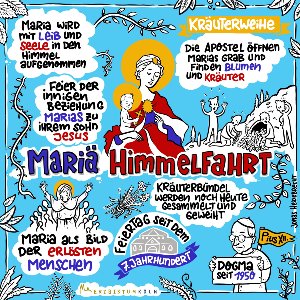 Maria wird
mit Leib und
Seele in den
Himmel
aufgenommen
Kräuterweihe
Die Apostel öffnen
Marias Grab und
finden Blumen
und Kräuter
Feier der
innigen
Beziehung
Marias
zu
ihrem Sohn
Jesus
Mariä Himmelfahrt
Kräuterbündel
werden noch heute
gesammelt und
geweiht
Maria als Bild
der erlösten
Menschen
Feiertag seit dem
7. Jahrhundert
Pius XII.
Dogma
seit 1950
Erzbistum Köln